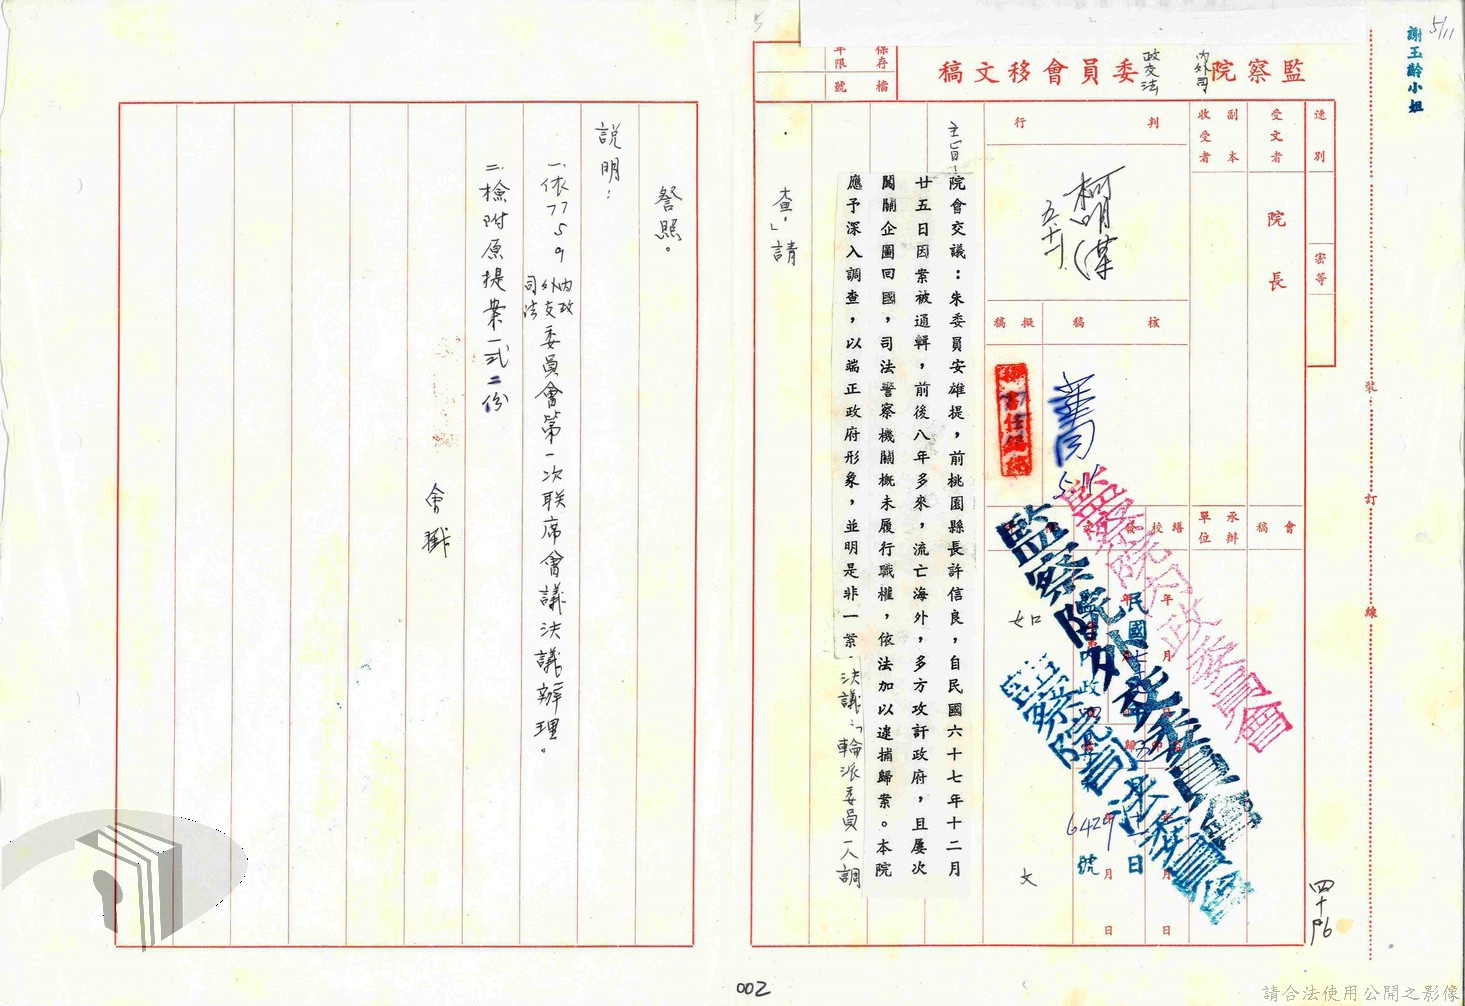 5/11
謝玉齡小姐
監察院內外司政交法委員會移文稿
保存年限
檔號
速別
密等
受文者
院長
副本收受者
判行
核稿
擬稿
會稿
承辦單位
主旨：院會交議：朱委員安雄提，前桃園縣長許信良，自民國六十七年十二月
廿五日因案被通輯，前後八年多來，流亡海外，多方攻訐政府，且屢次
闖關企圖回國，司法警察機關概未履行職權，依法加以逮捕歸案。本院
應予深入調查，以端正政府形象，並明是非一案，決議：「輪派委員一人調
查」請
詧照。
說明：
一、依7759內政外交司法委員會第一次聯席會議決議辦理。
二、檢附原提案一式二份
會戳
監察院內政委員會
監察院外交委員會
監察院司法委員會
如
文
6429號
裝訂線
002
請合法使用公開之影像